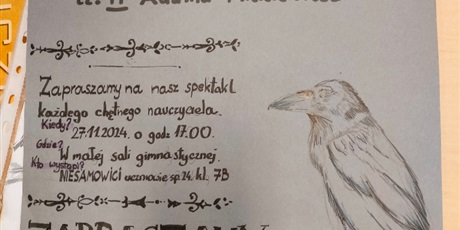 cz. II Adama Mickiewicza
Zapraszamy na nasz spektakl
każdego chętnego nauczyciela.
Kiedy?
27.11.2024. o godz 17.00.
Gdzie?
W małej sali gimnastycznej.
Kto wystąpi?
NIESAMOWICI uczniowie sp.24. kl. 7B
ZAPRASZAMY